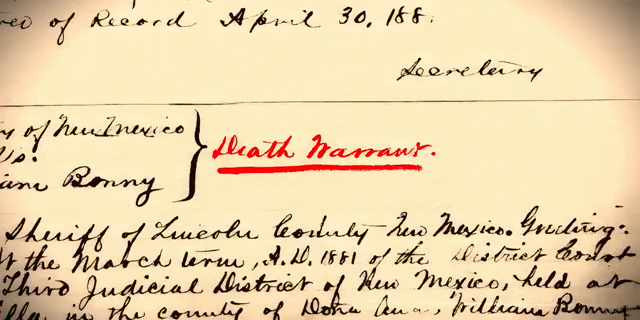 of Record April 30. 188
Secretary
of New Mexico
Vs.
Bonny
Death Warrant.
Sheriff of Lincoln County New Mexico. Greeting:
the March term, A.D. 1881 of the District Court
Third Judicial District of New Mexico, held at
in the county of Dona Ana, William Bonny